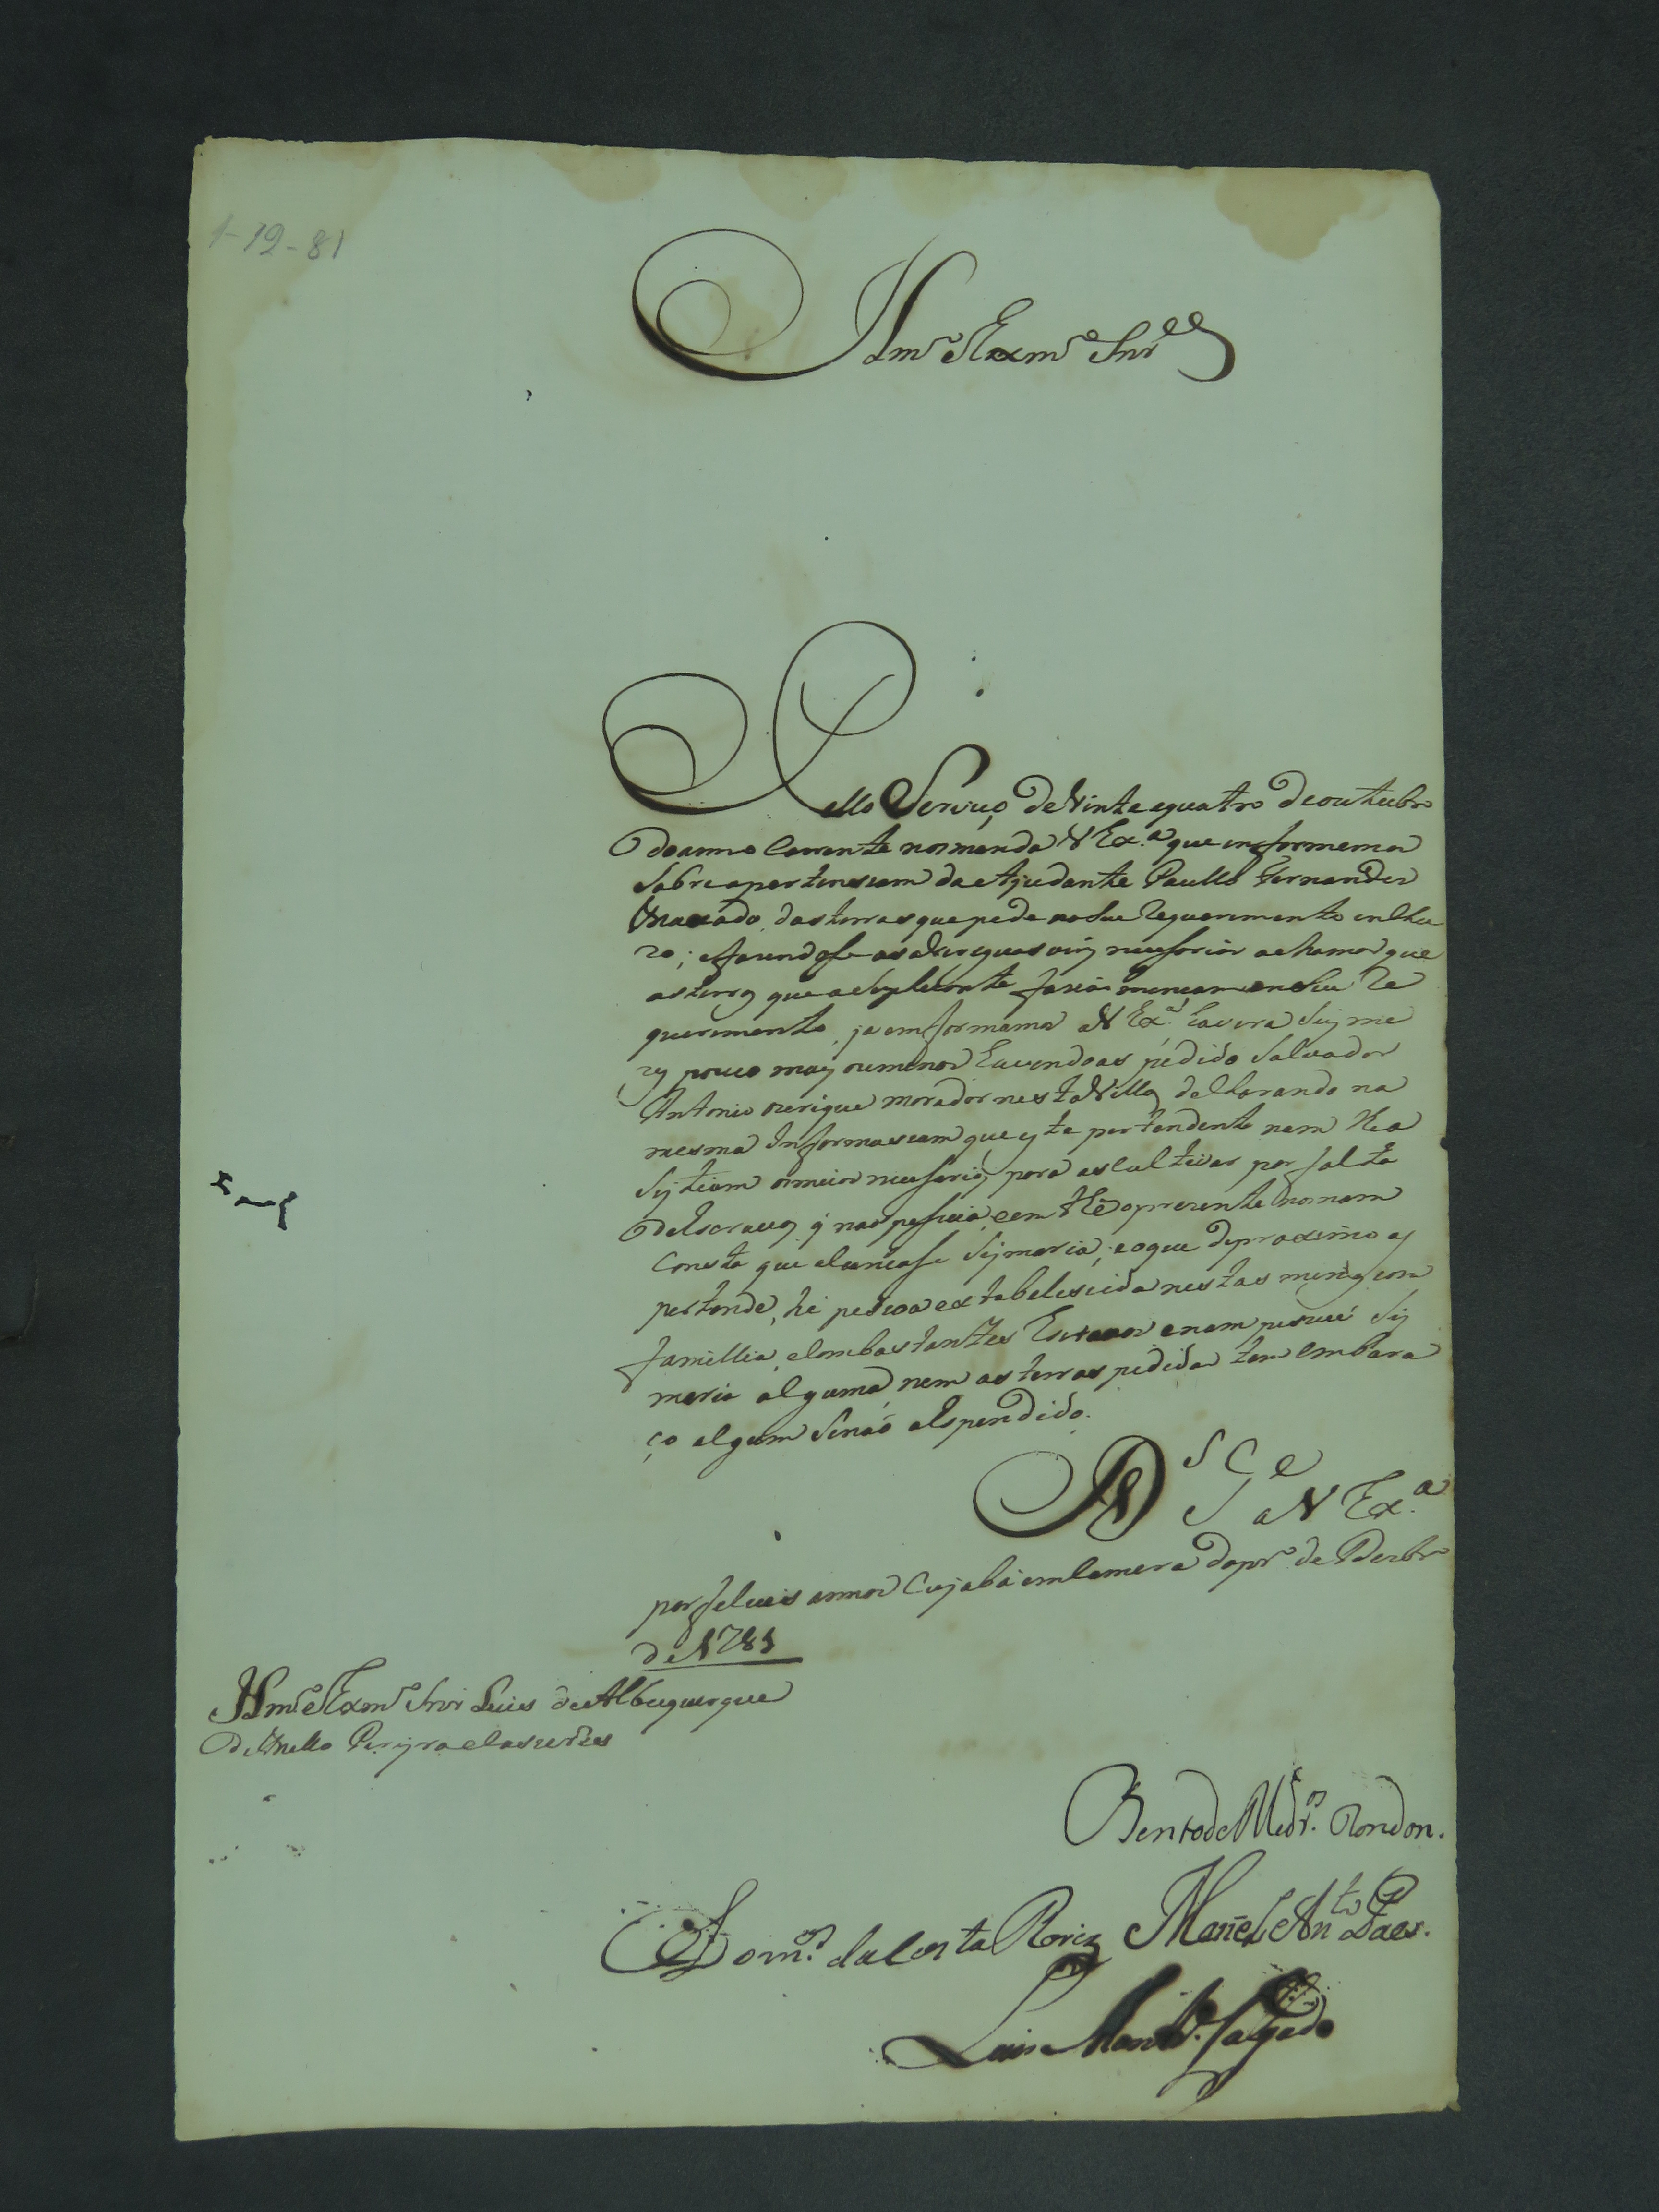 1-12-81
Illmº e Exmº Snr
Pello Serviço de Vinte equatro deoutubro
doanno Corrente nos manda V Ex.ª que informemos
Sobre apertenscam do Ajudante Paullo Fernandes
das terras que pede no Seu Requerimento incllu
zo; as deligencias necessarias achamos que
as terras que a Suplicante fas mencam em Seu Re
querimento, ja emformamos a V Exª. havera Seis me
zes pouco mais ou menos havendoas pedido Salvador
Antonio morador nesta Villa declarando na
mesma Informascam que este pertendente nem
os meios necessarios para as Cultivar por falta
de Escravos q nao pessuia, e em the o prezente nos nam
Consta que alcansase Sismaria; e o que de proximo as
pertende, he pessoa extabelescida nestas minas com
famillia, e com bastantes Escravos e nem pessue Sis
maria alguma, nem as terras pedidas tem Embara
ço algum Senaõ o Espendido.
Dˢ Gᵉ a V Ex.ª
por felises annos Cujabá em Camera do prº de Dezbrº
de 1781
Illmº e Exmº Snor Luis de Albuquerque
de Mello Pereyra e Casseres
Bento de Medros. Rondon.
Domos. da Costa Roriz Manel Anto Paes.
Luis Salgado